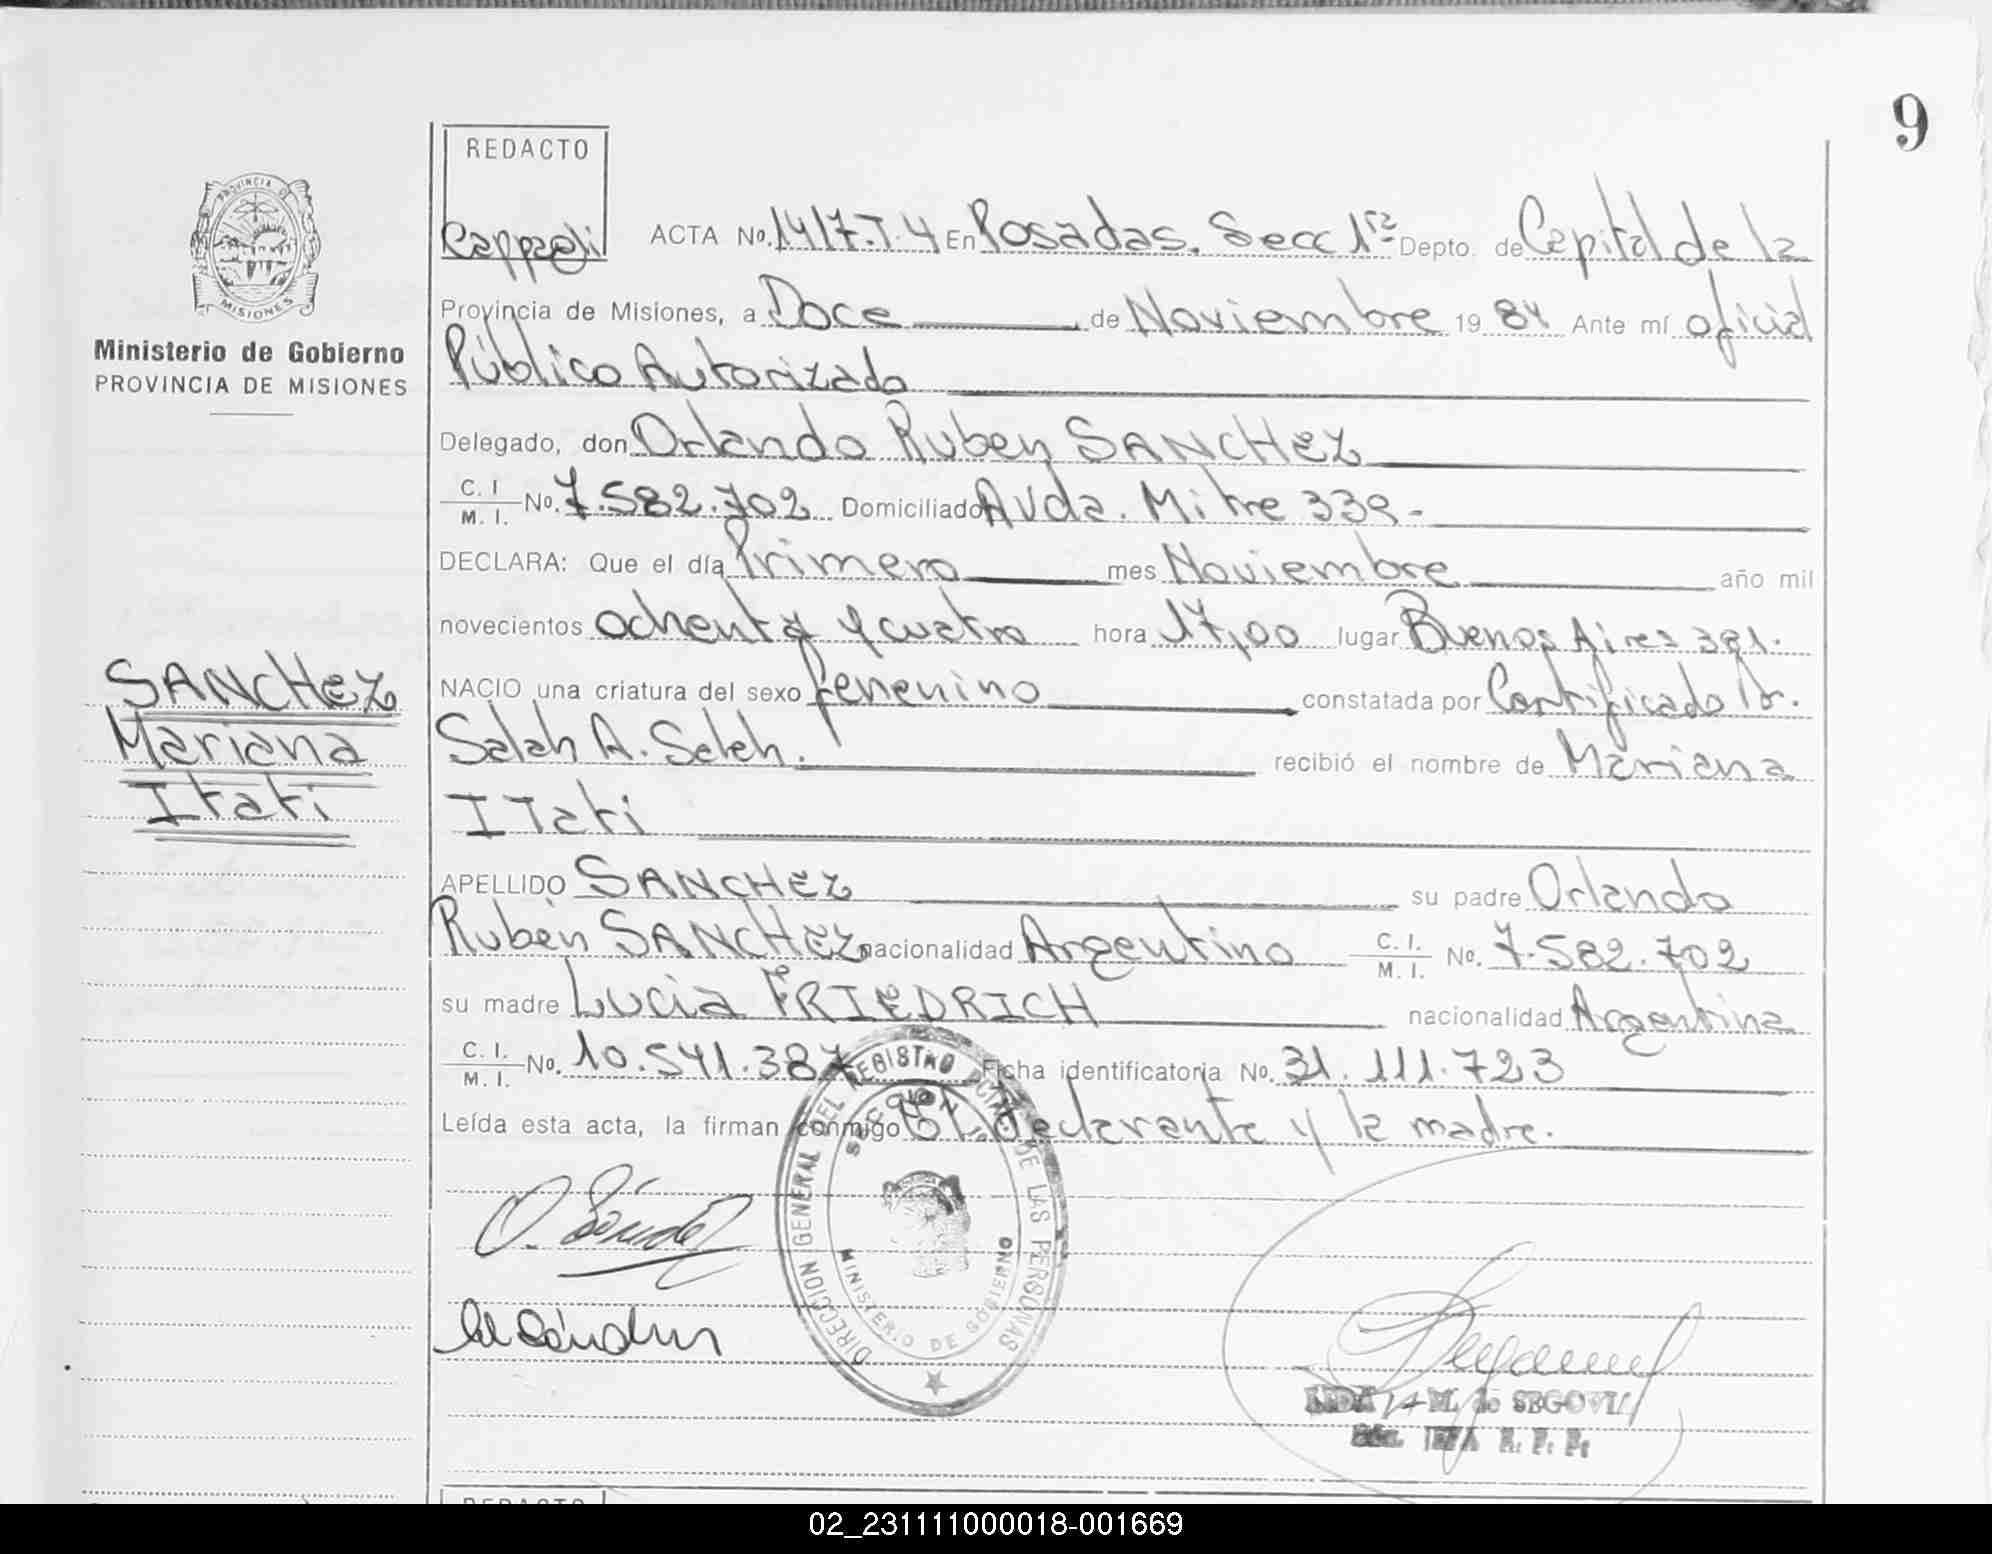 9
REDACTO
Cappagli
ACTA No. 1417.T.4 En Posadas. Secc 1ra Depto. de Capital de la
Provincia de Misiones, a Doce de Noviembre 19 84 Ante mí oficial
Público Autorizado
Delegado, don Orlando Ruben SANCHEZ
C. I. M. I. No. 7.582.702 Domiciliado Avda. Mitre 339.-
DECLARA: Que el día Primero mes Noviembre año mil
novecientos ochenta y cuatro hora 17,00 lugar Buenos Aires 391.
NACIO una criatura del sexo femenino constatada por Certificado Dr.
Salah A. Saleh. recibió el nombre de Mariana
ITati
APELLIDO SANCHEZ su padre Orlando
Rubén SANCHEZ nacionalidad Argentino C. I. M. I. No. 7.582.702
su madre Lucia FRIEDRICH nacionalidad Argentina
C. I. M. I. No. 10.541.387 Ficha identificatoria No. 31.111.723
Leída esta acta, la firman conmigo El declarante y la madre.
PROVINCIA DE
MISIONES
Ministerio de Gobierno
PROVINCIA DE MISIONES
SANCHEZ
Mariana
Itati
DIRECCION GENERAL DEL REGISTRO DE LAS PERSONAS
MINISTERIO DE GOBIERNO
M. de SEGOVIA
REDACTO
02_231111000018-001669